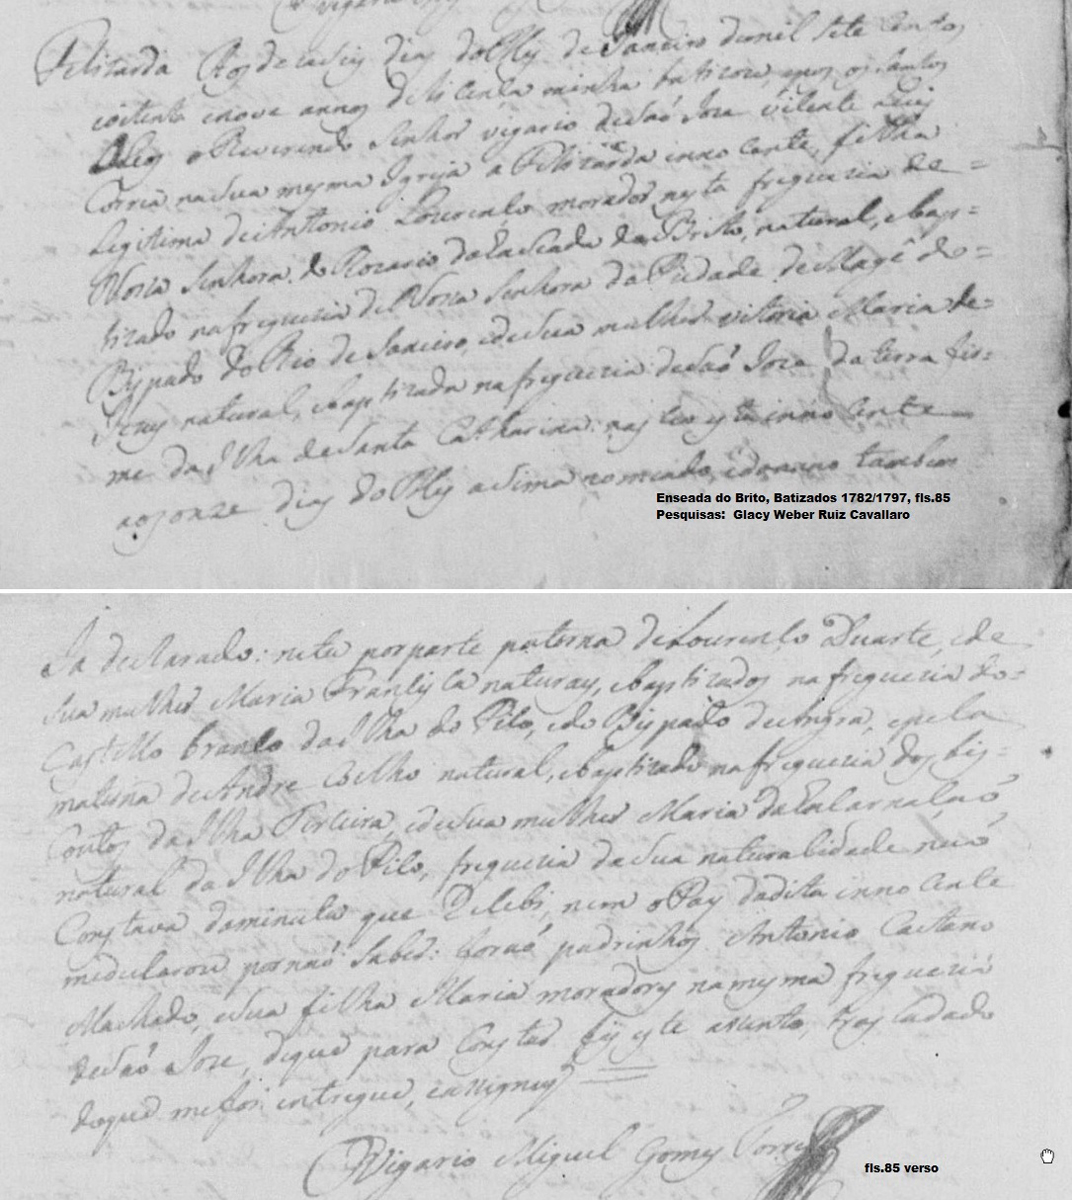 Felizarda Aos dezaseis dias do Mes de Janeiro de mil sete centos
eoitenta enove annos de licença minha batizou, epos os santos
oleos oReverendo Senhor vigario deSaõ Joze Vicente
Correa nasua mesma Igreja a Felizarda innocente, filha
Legitima de Antonio Lourenço morador nesta freguezia de =
Nossa Senhora do Rozario da Enseada do Brito, natural, ebap=
tizado nafreguezia de Nossa Senhora da Piedade de Magê do =
Bispado do Rio de Janeiro, edesua mulher vitoria Maria de=
Jezus natural, ebaptizada nafreguezia deSaõ Joze da terra fir=
me da Ilha deSanta Catharina: nasceo esta innocente
aos onze dias do Mes asima nomeado, edoanno tambem
Enseada do Brito, Batizados 1782/1797, fls.85
Pesquisas: Glacy Weber Ruiz Cavallaro
Ja declarado: neta porparte paterna de Lourenço Duarte, ede
sua mulher Maria Francisca naturaes, ebaptizados nafreguezia do=
Castello branco da Ilha do Pico, do Bispado de Angra, epela
materna de Andre Coelho natural, ebaptizado nafreguezia dos bis=
coutos da Ilha Terceira, edesua mulher Maria da Encarnaçaõ
natural da Ilha do Pico, freguezia dasua naturalidade naõ
Constava daminuta que Recebi, nem oPay dadita innocente
medeclarou pornaõ saber: foraõ padrinhos Antonio Caetano
Machado, esua filha Maria moradores namesma freguezia
deSaõ Joze, deque para Constar fis este acento, trasladado
doque mefoi entregue, eassigney
OVigario Miguel Gomes Torres
fls.85 verso